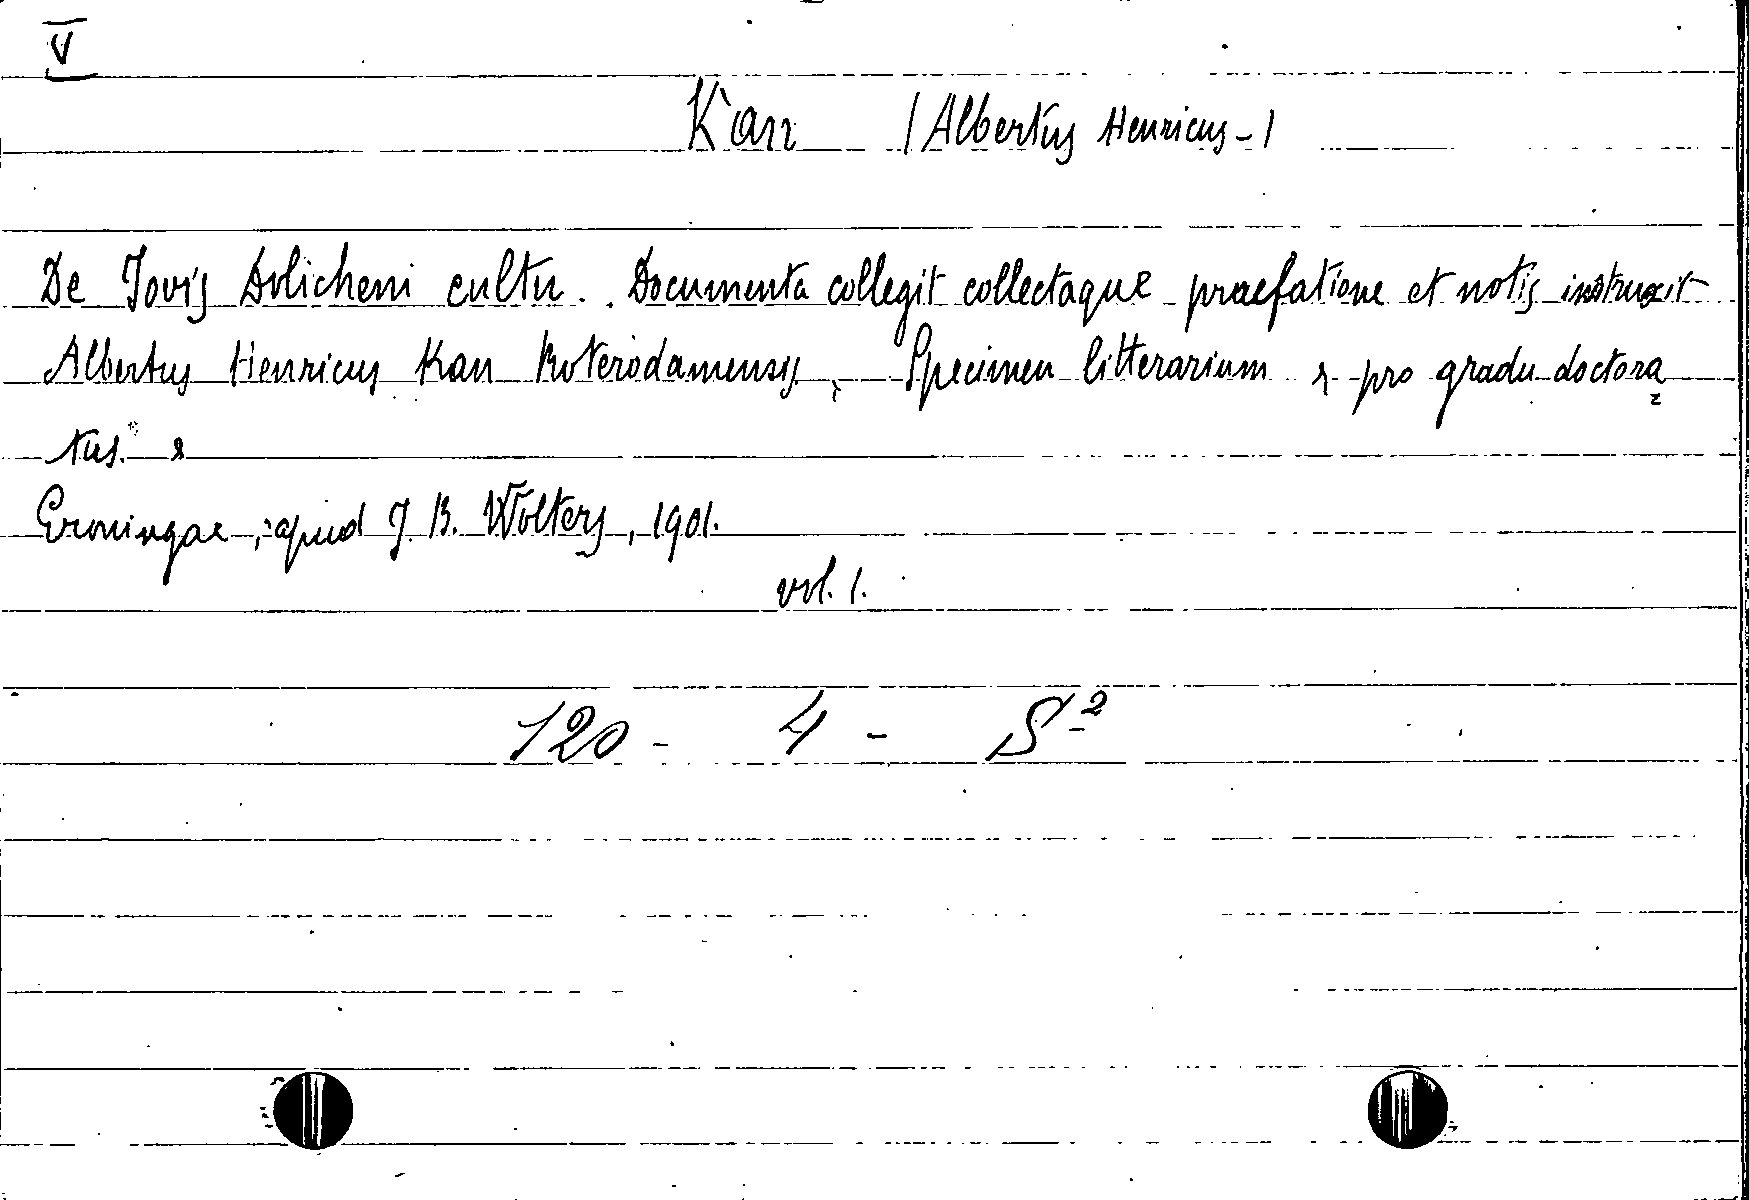 V
Kan /Albertus Henricus-/
De Jovis Dolicheni cultu. Documenta collegit collectaque praefatione et notis instruxit
Albertus Henricus Kan Roterodamensis, Specimen litterarium & pro gradu doctora
tus. &
Groningae, apud J. B. Wolters, 1901.
vol. 1.
120 - 4 - S²